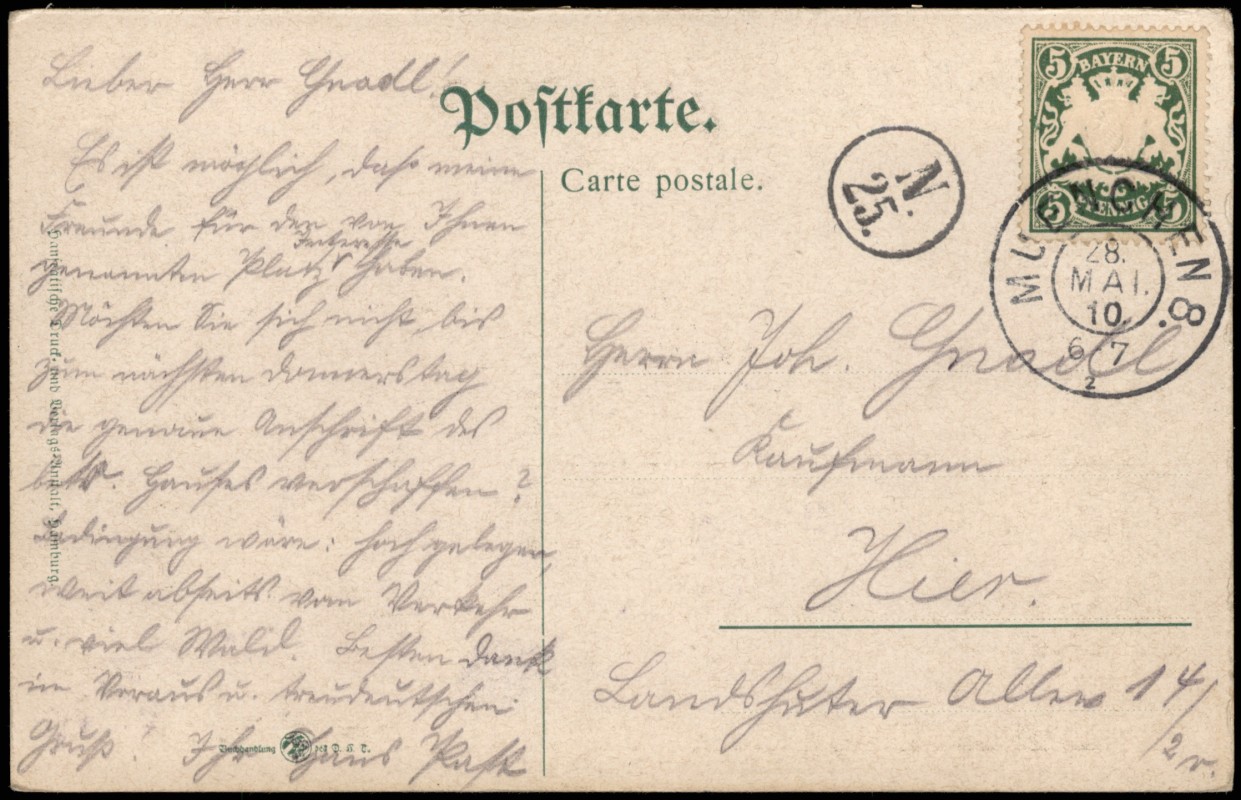 Lieber Herr Gnadl!
Es ist möglich, daß meine
Freunde für den von Ihnen
genannten Platz Interesse haben.
Möchten Sie sich nicht bis
zum nächsten Donnerstag
die genaue Anschrift des
betr. Hauses verschaffen?
Bedingung wäre: hochgelegen,
weit abseits vom Verkehr
u. viel Wald. Besten Dank
im Voraus u. treudeutschen
Gruß! Ihr Hans
Postkarte.
Carte postale.
N.
25.
5 BAYERN 5
5 PFENNIG 5
MUENCHEN 8.
28.
MAI.
10.
6 7
2
Herrn Joh. Gnadl
Kaufmann
Hier.
Landshuter Allee 14/
2 r.
Hanseatische Druck- und Verlags-Anstalt, Hamburg.
Buchhandlung des D. H. V.